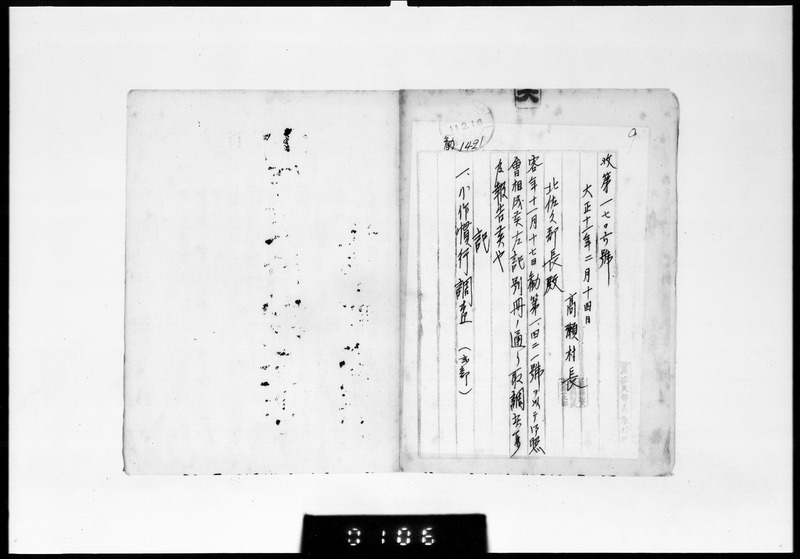 11.2.18
勧 1421
収第一七〇号號
大正十一年二月十四日
高瀬村長
北佐久郡長殿
客年十一月十七日勧第一四二一號ヲ以テ御照
會相成候左記別冊ノ通リ取調
及報告候也
記
一、小作慣行調査(壱部)
0106